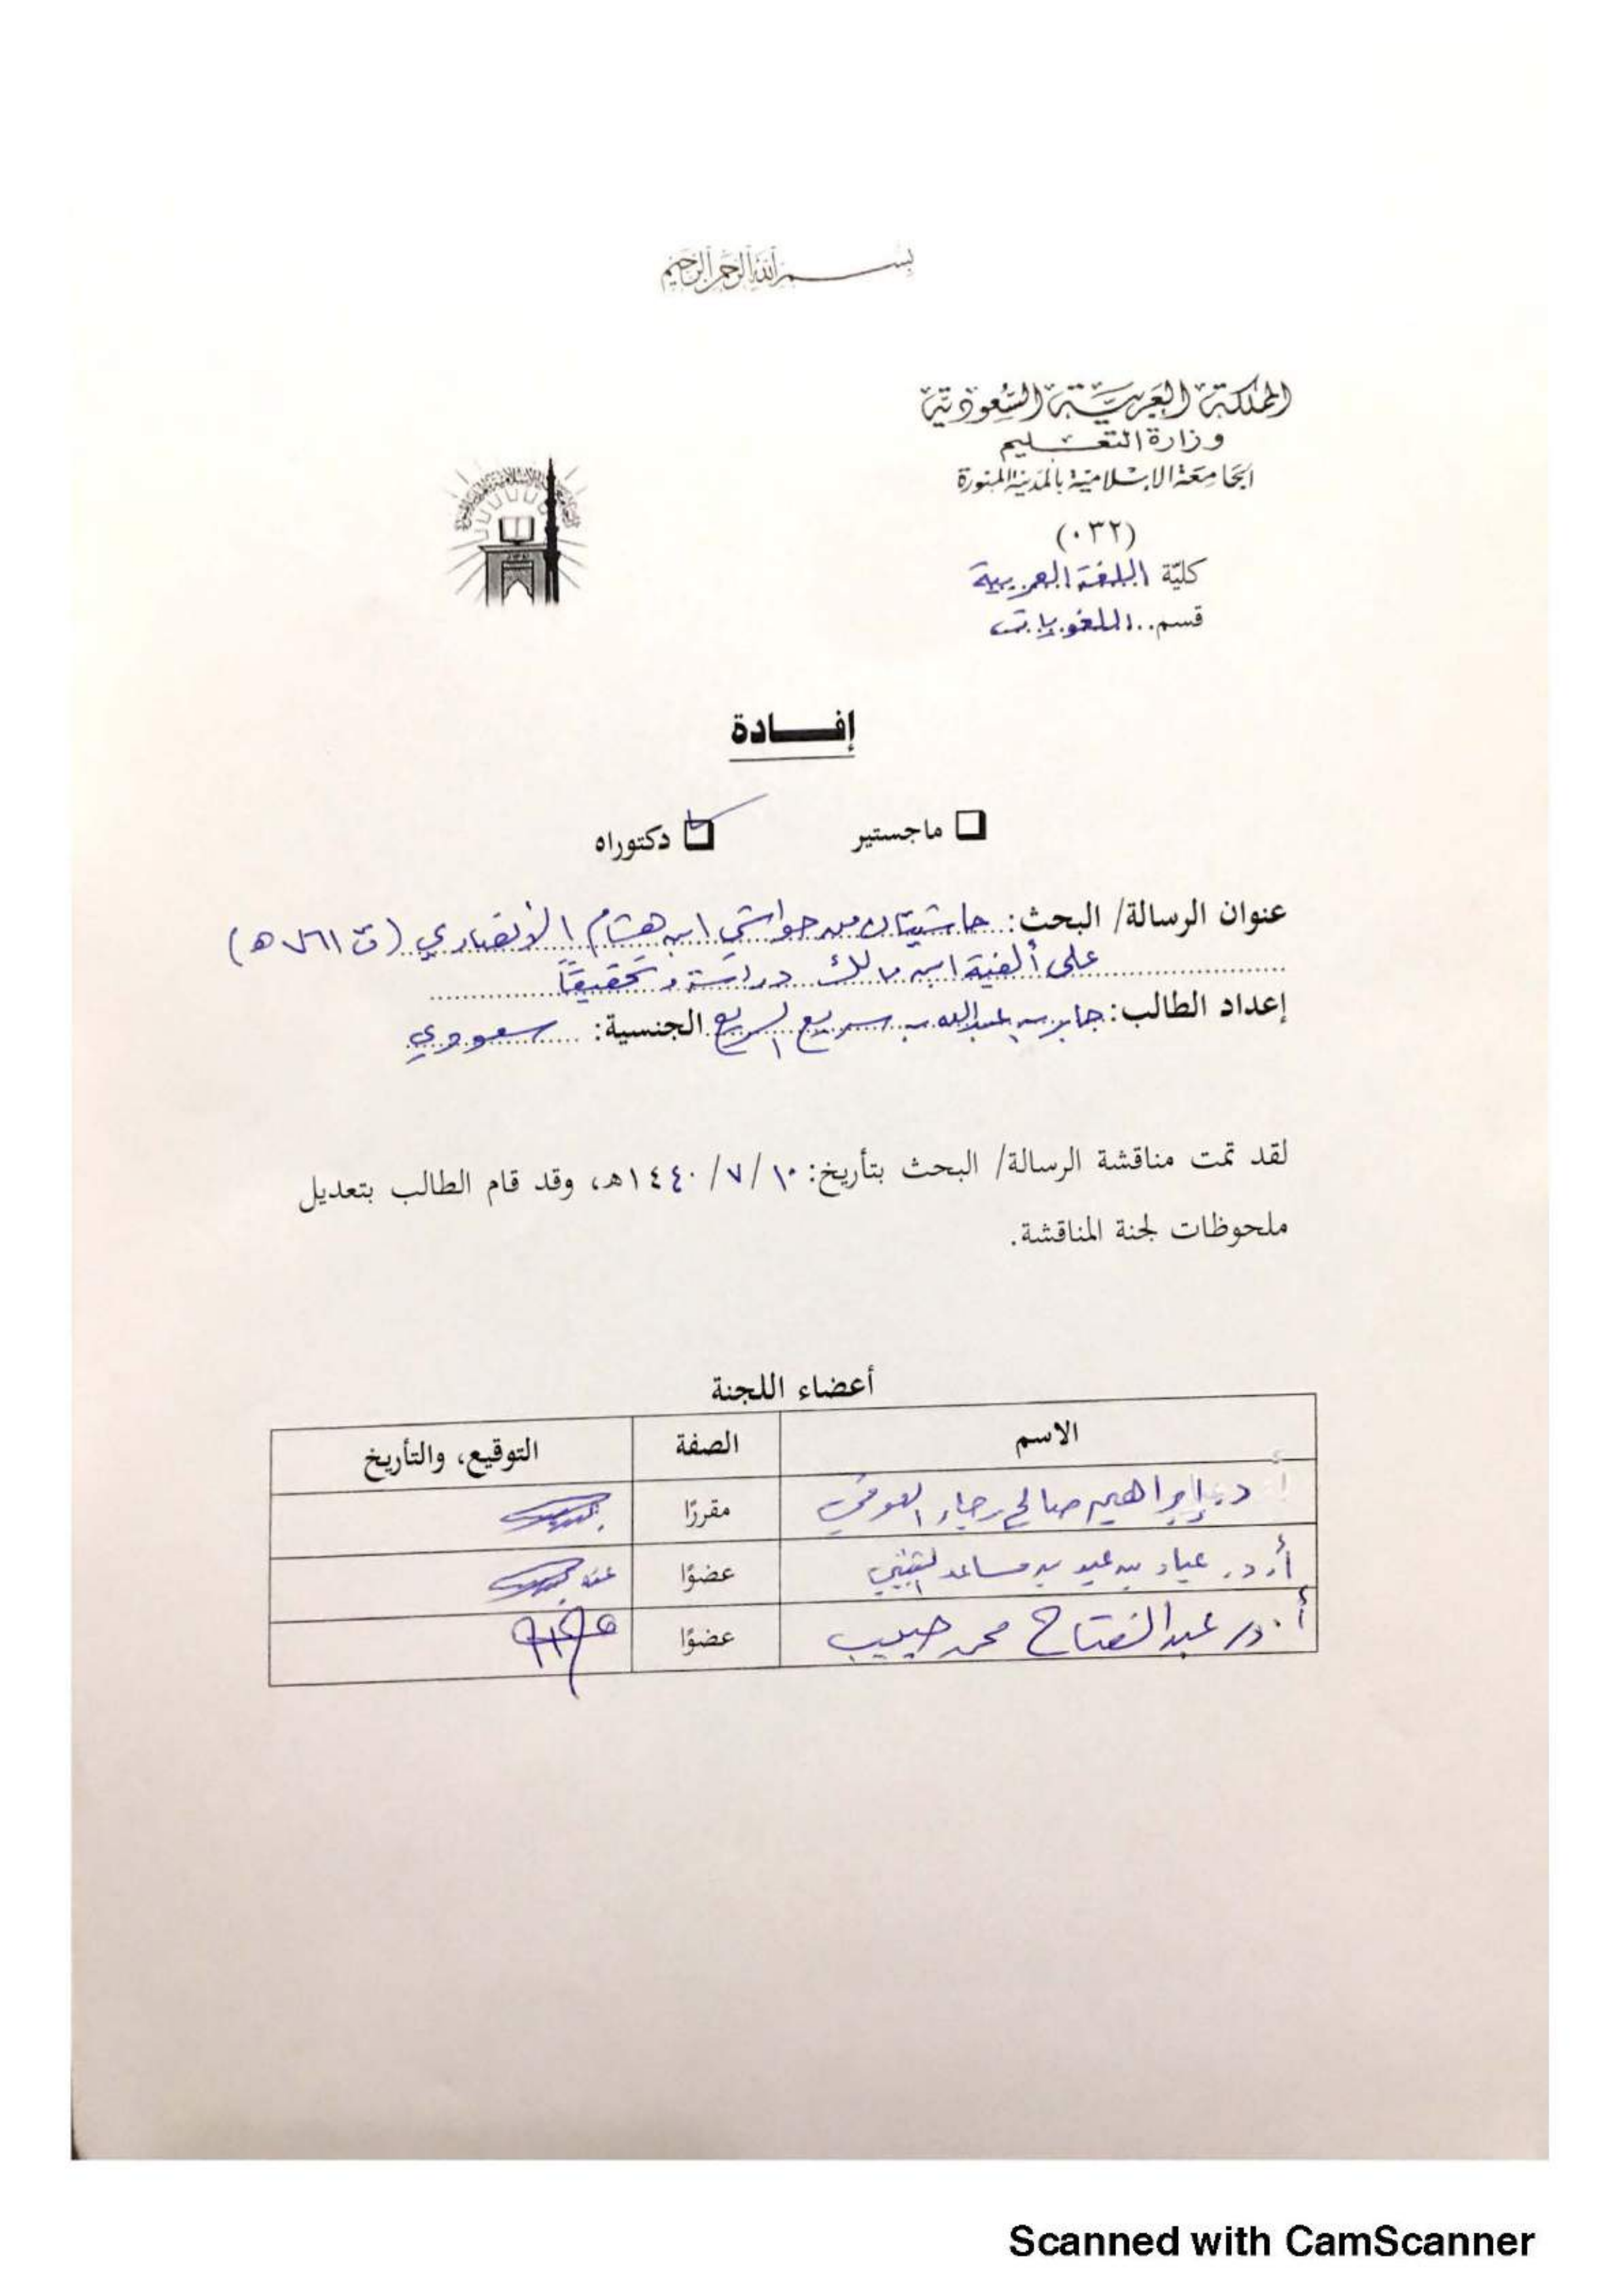 بسم الله الرحمن الرحيم
المملكة العربية السعودية
وزارة التعليم
الجامعة الإسلامية بالمدينة المنورة
(٠٣٢)
كليّة اللغة العربية
قسم اللغويات
إفــــادة
ماجستير
دكتوراه
عنوان الرسالة/ البحث: حاشيتان من حواشي ابن هشام الأنصاري (ت ٧٦١ ه)
على ألفية ابن مالك دراسة وتحقيقًا
إعداد الطالب: جابر بن عبدالله بن سريع السريع الجنسية: سعودي
لقد تمت مناقشة الرسالة/ البحث بتأريخ: ١٠/ ٧/ ١٤٤٠هـ، وقد قام الطالب بتعديل
ملحوظات لجنة المناقشة.
أعضاء اللجنة
الاسم الصفة التوقيع، والتأريخ
د. إبراهيم صالح رجاء العوفي مقررًا
أ. د. عياد بن عيد بن مساعد الثبيتي عضوًا
أ. د. عبدالفتاح محمد حبيب عضوًا
Scanned with CamScanner